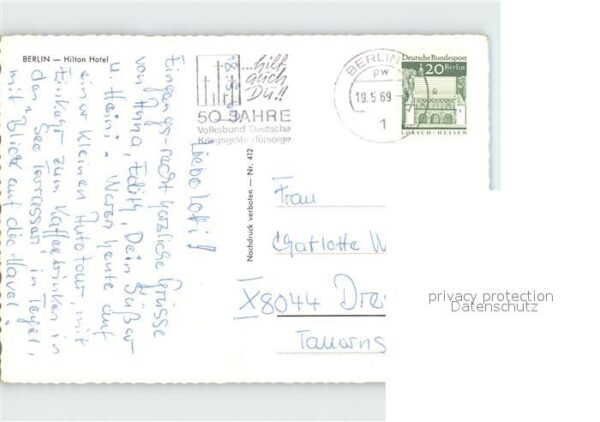 BERLIN — Hilton Hotel
...hilf
auch
Du!!
50 JAHRE
Volksbund Deutsche
Kriegsgräberfürsorge
BERLIN
PW
19.5.69
1
Deutsche Bundespost
20 Berlin
LORSCH/HESSEN
18.5.69
Liebe Loti!
Eingangs recht herzliche Grüsse
von Anna, Edith, Dein Süßer
u. Heini. Waren heute auf
einer kleinen Autotour mit
Einkehr zum Kaffeetrinken in
den Seeterrassen in Tegel,
mit Blick auf die Havel.
Nachdruck verboten — Nr. 412
Frau
Charlotte W
X8044 Dre
privacy protection
Datenschutz